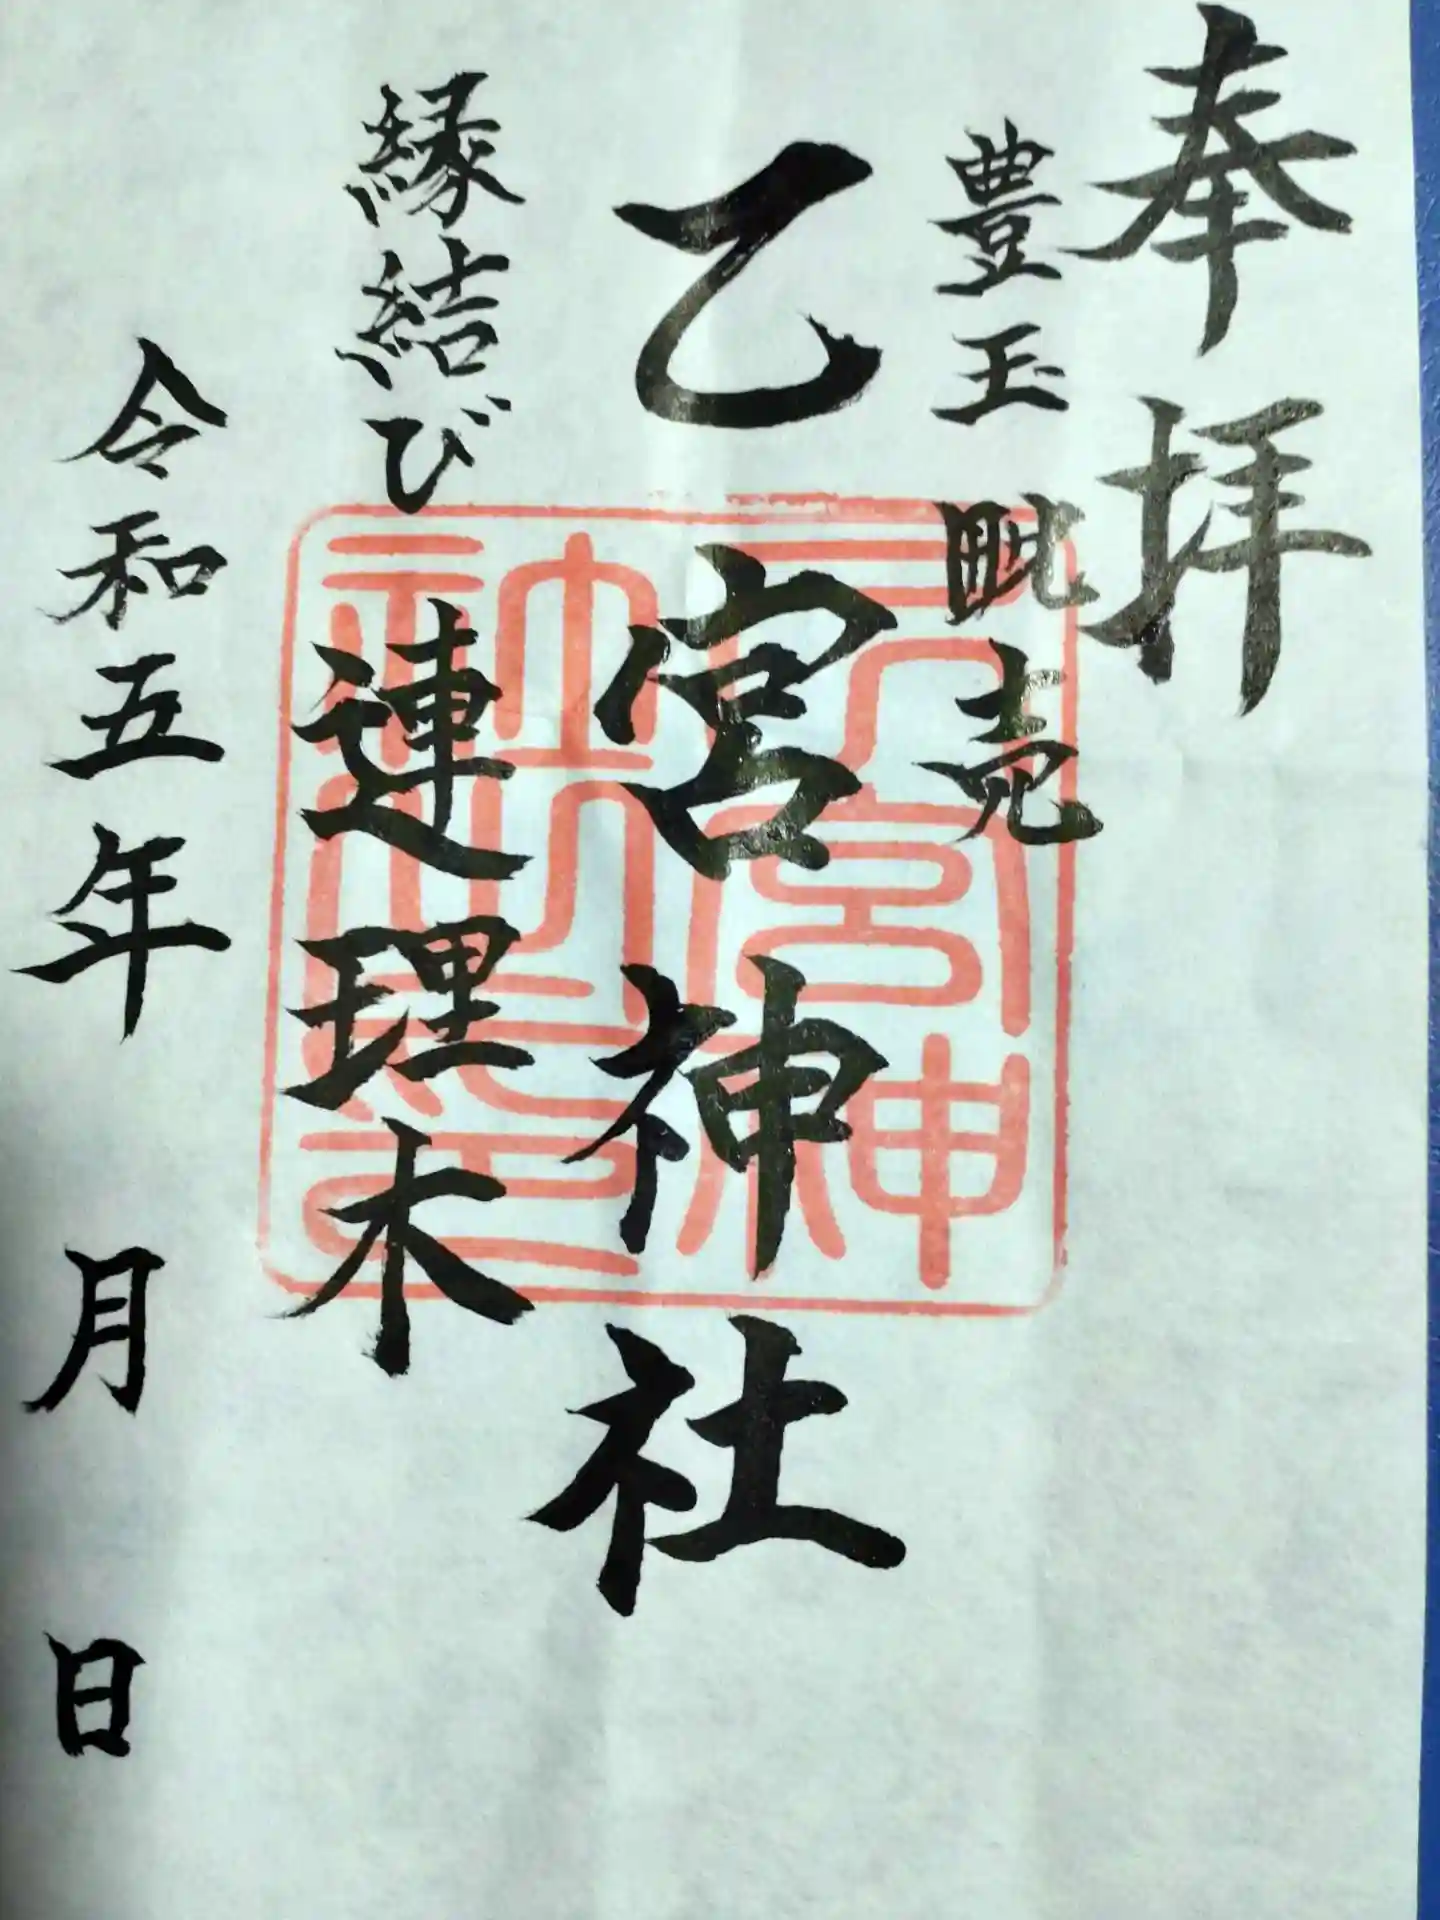 奉拝
豊玉毗売
乙宮神社
縁結び
連理木
令和五年 月 日